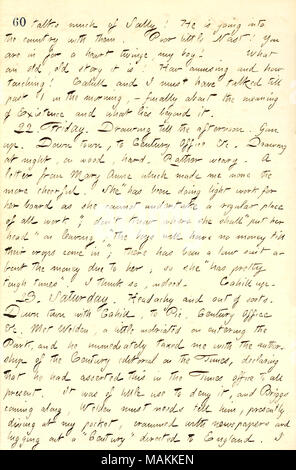 60 talks much of Sally! He is going into
the country with them. Poor little Nast! You
are in for a heart twinge, my boy! What
an old, old story it is! How amusing and how
touching! Cahill and I must have talked till
past 1 in the morning, — finally about the meaning
of Existence and what lies beyond it.
22. Friday. Drawing till the afternoon. Gun
up. Down town, to Century Office &c. Drawing
at night, on wood, hard. Rather weary. A
letter from Mary Anne which made me none the
more cheerful. She "has been doing light work for
her board as she cannot undertake a regular place
of all work," don't know where she shall "put her
head" on leaving, "the boys will have no money till
their wages come in"; there has been a law suit a-
bout the money due to her, so she "has pretty
tough times". I think so, indeed. Cahill up.
23. Saturday. Headachy and out of sorts.
Down town with Cahill, to "Pic," Century Office
&c. Met Welden, a little inebriated on entering the
Park, and he immediately taxed me with the author-
ship of the Century editorial on the Times, declaring
that he had asserted this in the Times office to all
present. It was of little use to deny it, and Briggs
coming along, Welden must needs tell him, presently
diving at my pocket, crammed with newspapers and
lugging out a "Century" directed to England. I
alamy
Image ID: MAKKEN
www.alamy.com